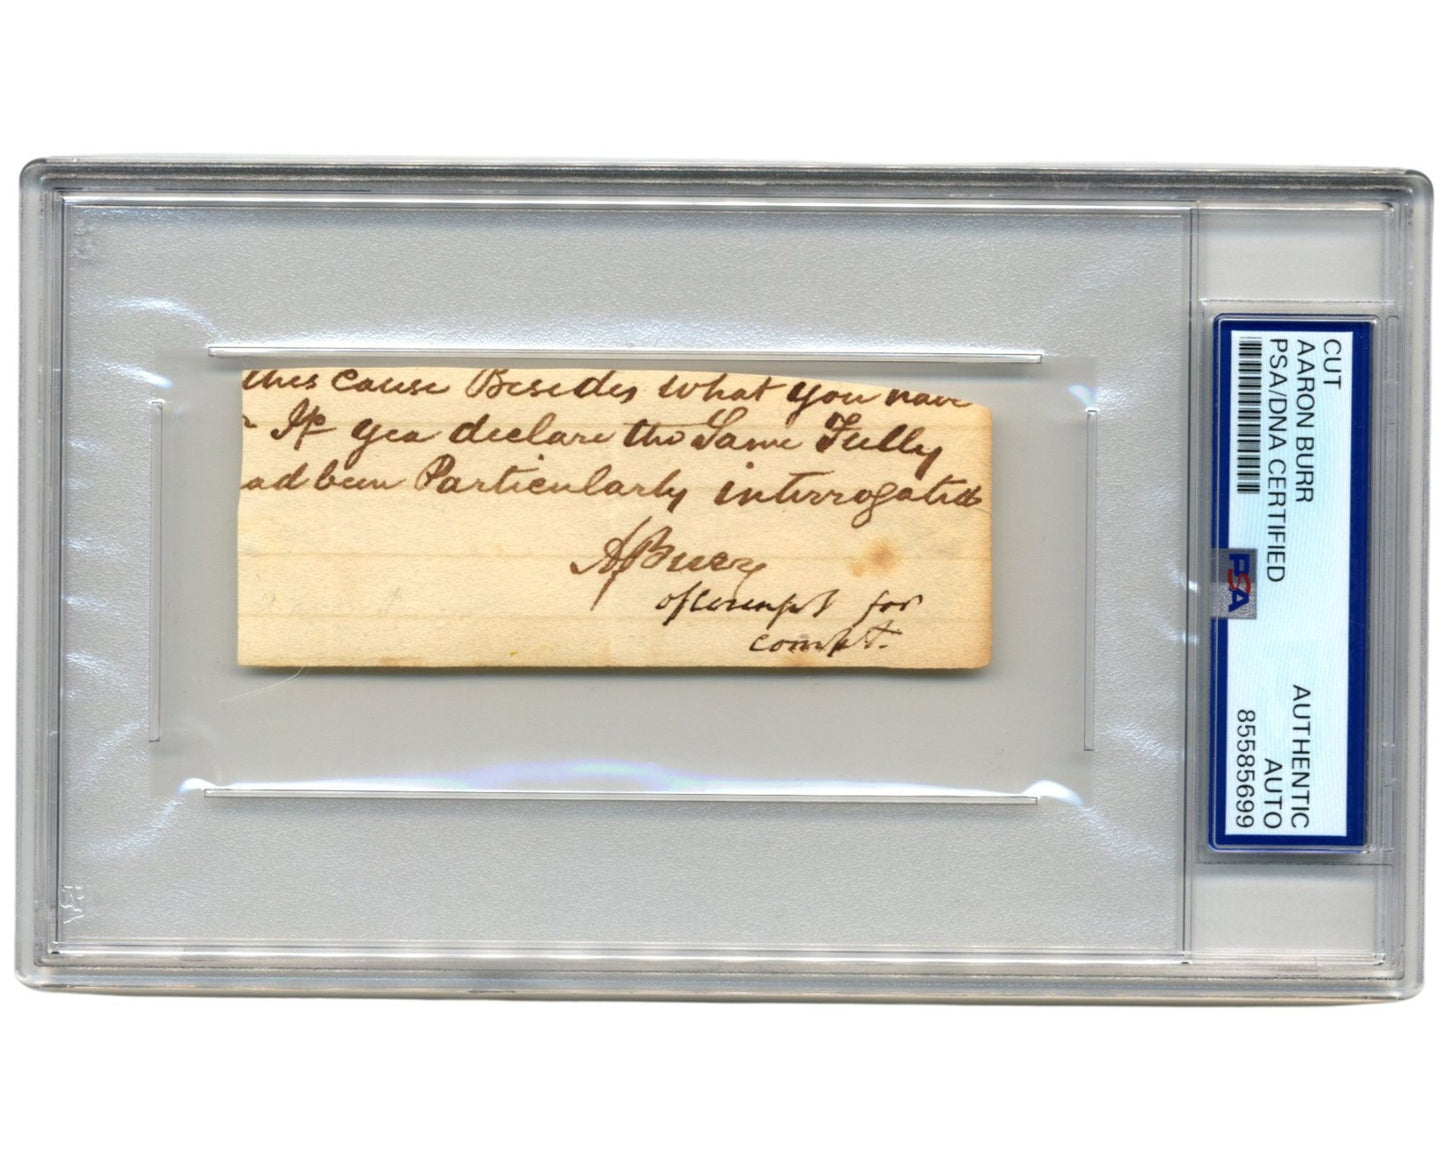 this cause Besides what you have
If yea declare the Same Fully
ad been Particularly interrogated
ABurr
of Counsel for
complt.
CUT
AARON BURR
PSA/DNA CERTIFIED
PSA
AUTHENTIC
AUTO
85585699